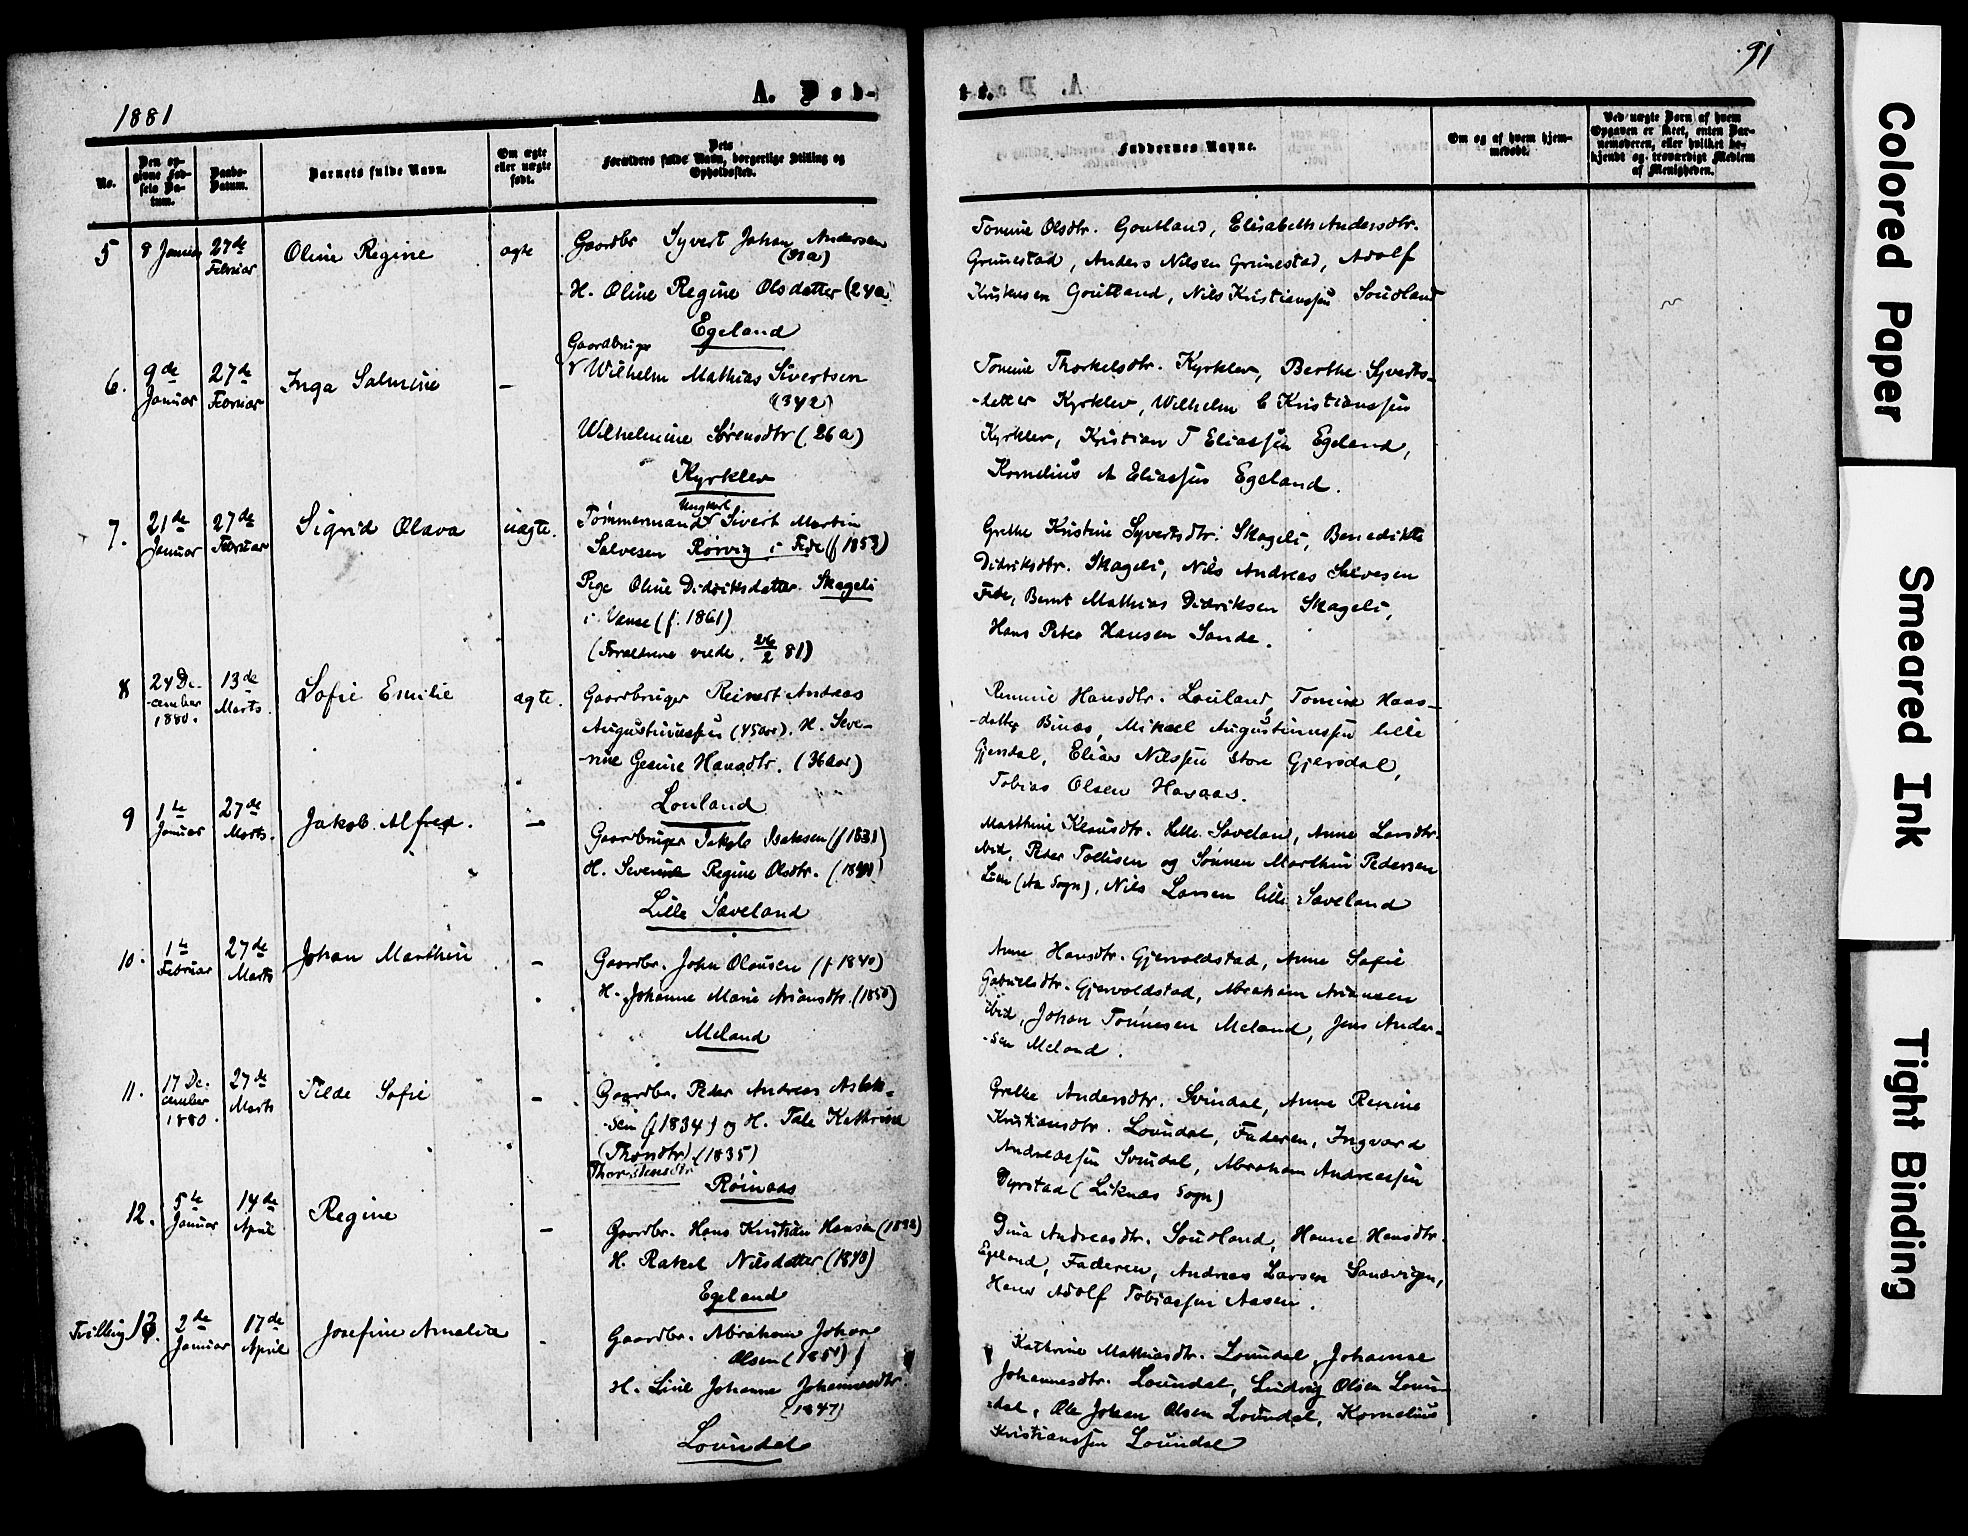 1881
A. Døb-
te.
91
No.
Den op-
givne Fød-
sels Da-
tum.
Daabs-
Datum.
Barnets fulde Navn.
Om ægte
eller uægte
født.
Dets
Forældres fulde Navn, borgerlige Stilling og
Opholdssted.
Faddernes Navne.
Om og af hvem hjem-
medøbt.
Ved uægte Børn af hvem
Opgaven er skeet, enten Bar-
nemoderen, eller hvilket be-
kjendt og troværdigt Medlem
af Menigheden.
5
8 Januar
27de
Februar
Oline Regine
ægte
Gaardbr Syvert Johan Andersen
H. Oline Regine Olsdatter (24a)
Egeland
Tomine Olsdtr. Goutland, Elisabeth Andersdtr.
Grunestad, Anders Nilsen Grunestad, Adolf
Goutland, Nils Kristianssen Soudland
6.
9de
Januar
27de
Februar
Inga Salmine
—
Gaardbruger
Wilhelm Mathias Sivertsen
Wilhelmine Sørensdtr (26a)
Kyrklev
Tomine Thorkelsdtr. Kyrklev, Berthe Syverts-
-datter Kyrklev, Wilhelm C Kristianssen
Kyrklev, Kristian T Eliassen Egeland,
Kornelius A Eliassen Egeland.
7.
21de
Januar
27de
Februar
Sigrid Olava
uægte.
Ungkarl
Tømmermand Sivert Martin
Salvesen Rørvig i Fede (f 1853)
Pige Oline Didriksdatter Skageli
i Vanse (f. 1861)
(Forældrene viede 26/2 81)
Grethe Kristine Syvertsdtr. Skageli, Benedikte
Didriksdtr. Skageli, Nils Andreas Salvesen
Fede, Bernt Mathias Didriksen Skageli,
Hans Peter Hansen Sande.
8
24 De-
-cember
1880.
13de
Marts.
Sofie Emilie
ægte.
Gaardbruger Reinert Andreas
Augustinussen (45aar). H. Seve-
-rine Gesine Hansdtr. (36aar)
Louland
Hansdtr. Louland, Tomine Hans-
-datter Mikael Augustinussen lille
Gjersdal, Elias Nilssen store Gjersdal,
Tobias Olsen Havaas.
9
1te
Januar
27de
Marts.
Jakob Alfred.
—
Gaardbruger Jakob Isaksen (f 1831)
H. Severine Regine Olsdtr.
Lille Sæveland
Marthine Klausdtr. Lille Saveland, Anne Larsdtr.
ibid, Peder Tollisen og Sønnen Marthin Pedersen
Nils Larsen lille Saveland
10.
1te
Februar
27de
Marts
Johan Marthin
—
Gaardbr. John Olausen (f 1840)
H. Johanne Marie Ariansdtr. (1850)
Meland
Anne Hansdtr. Gjervoldstad, Anne Sofie
Gabrielsdtr. Gjervoldstad, Abraham Ariansen
ibid, Johan Tønnesen Meland, Jens Ander-
-sen Meland.
11.
17 De-
cember
1880.
27de
Marts
Tilde Sofie
—
Gaardbr. Peder Andreas Aslak-
-sen (f 1834) og H. Tale Kathrine
(Thondtr) (1835)
Røinaas
Grethe Andersdtr. Svindal, Anne Regine
Kristiansdtr. Loundal, Faderen, Ingvard
Andreassen Svindal, Abraham Andreassen
Dyrstad (Liknæs Sogn)
12.
5te
Januar
14de
April
Regine
—
Gaardbr. Hans Kristian Hansen
H. Rakel Nilsdatter (1840)
Egeland
Dina Andreasdtr. Soudland, Hanne Hansdtr.
Egeland, Faderen, Andreas Larsen Sandvigen,
Hans Adolf Tobiassen Aasen.
Tvilling 13.
2de
Januar
17de
April
Josefine Amalia
-
Gaardbr. Abraham Johan
Olsen (1851)
H. Line Johanne Johannesdtr.
(1847)
Loundal
Kathrine Mathiasdtr. Loundal, Johanne
Johannesdtr. Loundal, Ludvig Olsen Loun-
-dal, Ole Johan Olsen Loundal, Kornelius
Kristianssen Loundal
Colored Paper
Smeared Ink
Tight Binding